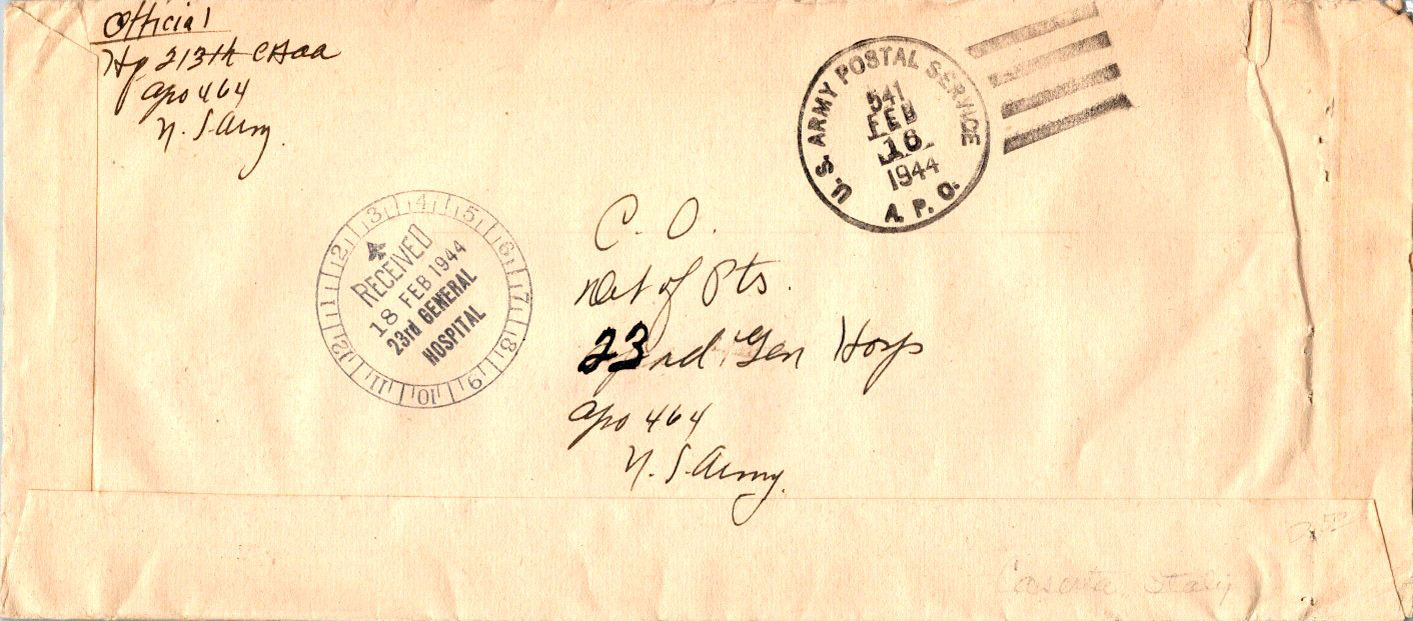 Official
Hq 213th CAaa
Apo 464
U.S. Army.
U. S. ARMY POSTAL SERVICE
541
FEB
18
1944
A. P. O.
1 2 3 4 5 6 7 8 9 10 11 12
RECEIVED
18 FEB 1944
23rd GENERAL
HOSPITAL
C. O.
Det of Pts.
23nd. Gen Hosp
Apo 464
U.S. Army.
Caserta, Italy